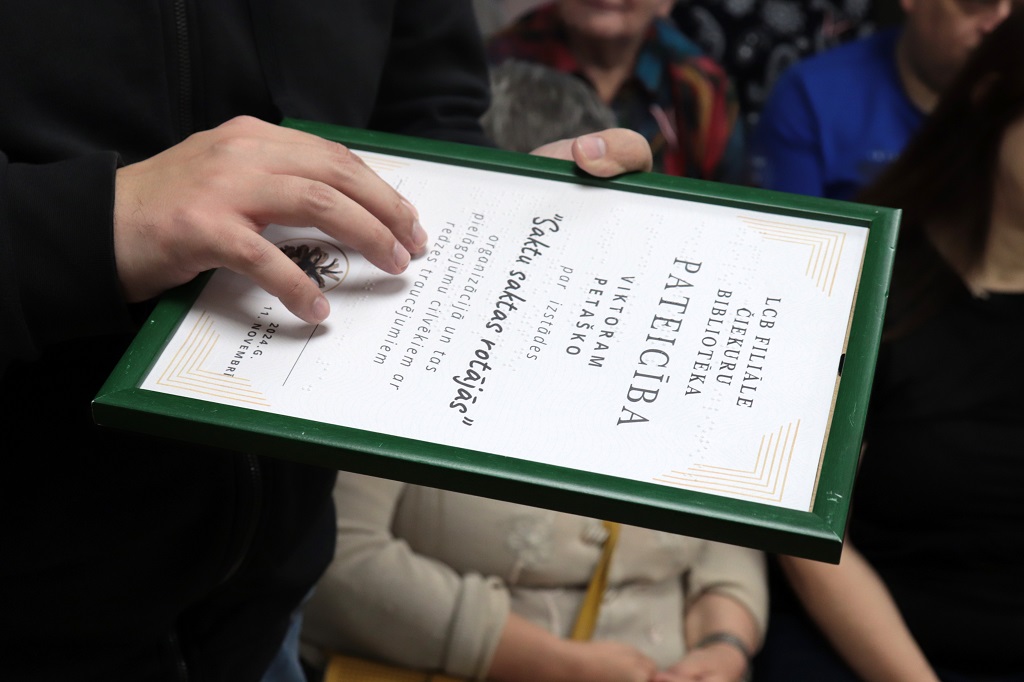 LCB FILIĀLE
ČIEKURU
BIBLIOTĒKA
PATEICĪBA
VIKTORAM
PETAŠKO
par izstādes
"Saktu saktas rotājās"
organizāciju un tās
pielāgojumu cilvēkiem ar
redzes traucējumiem
2024.G.
11. NOVEMBRĪ